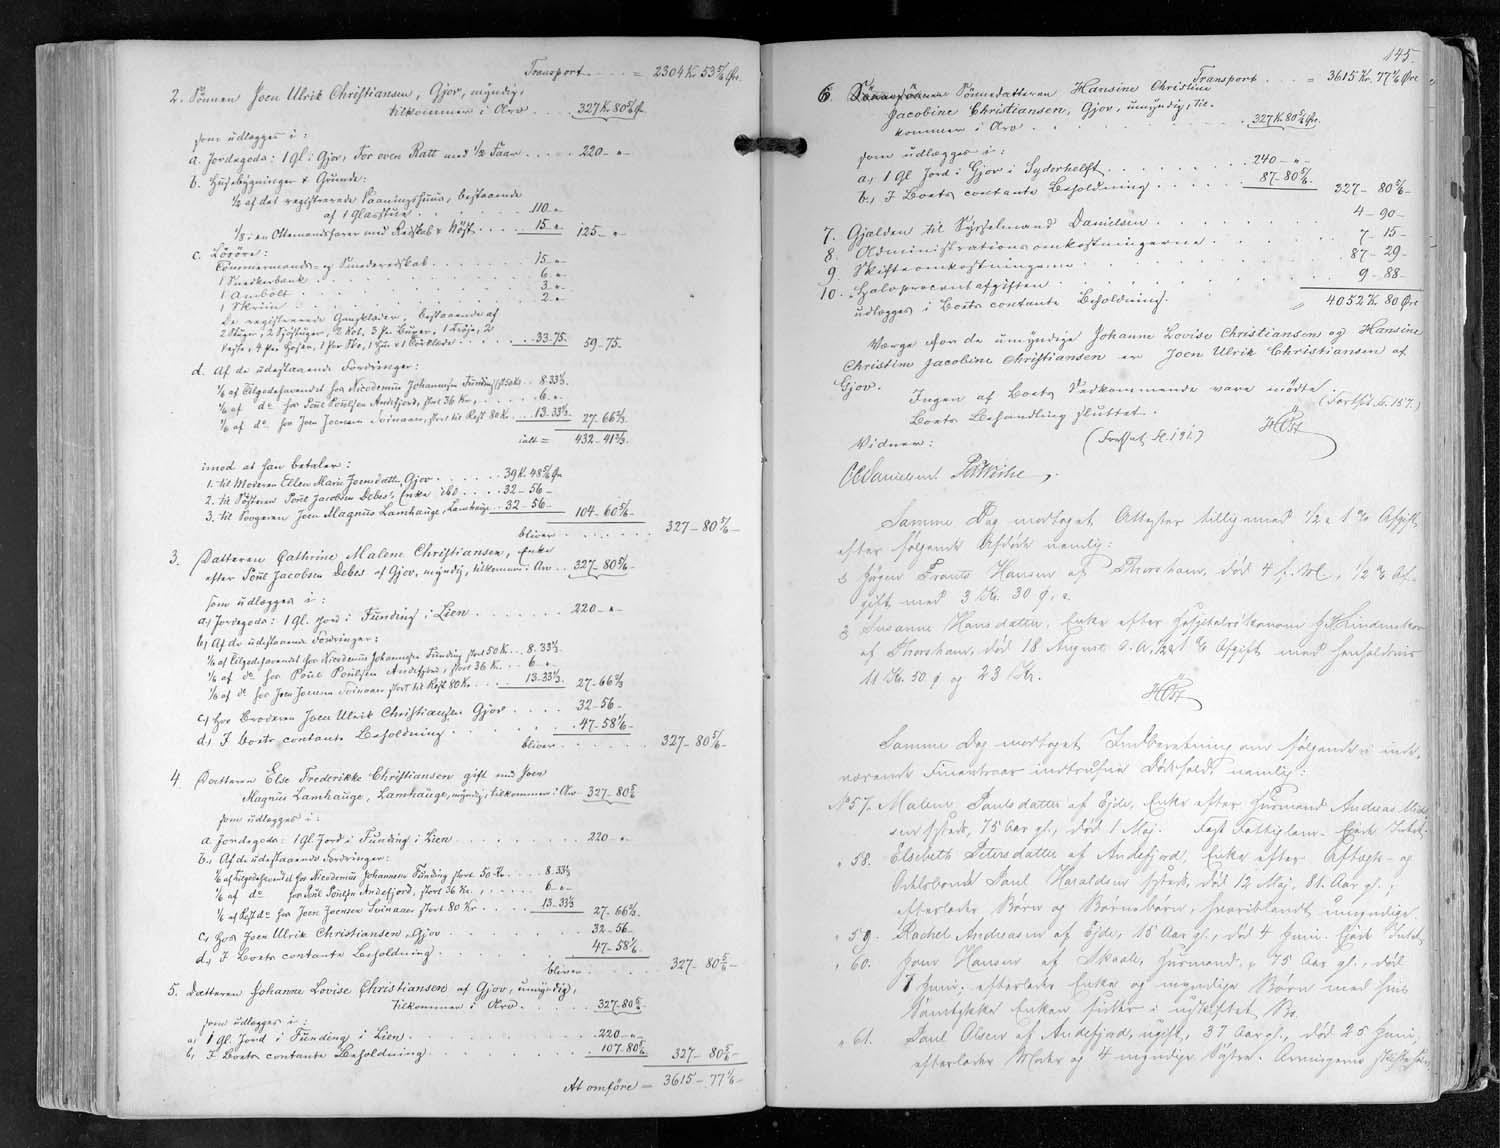 Transport . . . . = 2304 Kr. 53 5/6 Øre
2. Sönnen Joen Ulrik Christiansen, Gjov, myndig,
tilkommer i Arv . . . . 327 Kr. 80 5/6 Ør.
som udlægges i:
a. Jordegods: 1 gl. i Gjov, For oven Ratt med 1/2 Faar . . . . . 220 – "
b. Husebygninger & Grunde:
1/2 af det registrerede Vaaningshuus, bestaaende
af 1 Glasstue . . . . . . . 110 - "
1/8 i en Ottemandsfarer med Redskab & Nöst . . . . 15 - " 125 – "
c. Lösöre:
Tömmermands- og Smederedskab . . . . . . . 15 - "
1 Snedkerbænk . . . . . . . 6 - "
1 Ambolt . . . . . . . 3 - "
1 Skriin . . . . . . . 2 - "
De registrerede Gangklæder, bestaaende af
2 Stuger, 2 Sjöstuger, 2 Kot, 3 Par Buxer, 1 Tröje, 2
Veste, 4 Par Hoser, 1 Par Sko, 1 Hue & 1 Törklæde . . . . . . 33-75. 59-75.
d. Af de udestaaende Fordringer:
1/6 af Tilgodehavendet hos Nicodemus Johannesen Funding stort 50 Kr . . 8.33 1/3.
1/6 af do hos Poul Poulsen Andefjord, stort 36 Kr. . . . . . 6 - "
1/6 af do hos Joen Joensen Svinaaer, stort til Rest 80 Kr. . . . 13-33 1/3 27-66 2/3.
ialt = 432-41 2/3.
imod at han betaler:
1. til Moderen Ellen Marie Joensdatter, Gjov . . . . . 39 Kr. 48 5/6 Ør
2. til Søsteren Poul Jacobsen Debes' Enke ibd. . . . . 32 – 56 –
3. til Svogeren Joen Magnus Lamhauge, Lamhauge . . 32 – 56 – 104 – 60 5/6 –
bliver . . . . . . . 327 – 80 5/6 –
3. Datteren Cathrine Malene Christiansen, Enke
efter Poul Jacobsen Debes af Gjov, myndig, tilkommer i Arv . . 327-80 5/6 –
som udlægges i:
a, Jordegods: 1 gl. Jord i Funding i Lien . . . . . . . 220 – "
b, Af de udestaaende Fordringer:
1/6 af Tilgodehavendet hos Nicodemus Johannesen Funding stort 50 K . . 8.33 1/3.
1/6 af do hos Poul Poulsen Andefjord, stort 36 K. . . . 6 - "
1/6 af do hos Joen Joensen Svinaaer stort til Rest 80 Kr. . . . . 13-33 1/3. 27-66 2/3
c, hos Broderen Joen Ulrik Christiansen Gjov . . . . . 32 – 56 –
d, I Boets contante Beholdning . . . . . . . 47-58 1/6 –
bliver . . . . . . 327 – 80 5/6 –
4. Datteren Else Frederikke Christiansen gift med Joen
Magnus Lamhauge, Lamhauge, myndig, tilkommer i Arv – 327-80 5/6
som udlægges i:
a. Jordegods: 1 gl. Jord i Funding i Lien . . . . . . . 220 – "
b, Af de udestaaende Fordringer:
1/6 af Tilgodehavendet hos Nicodemus Johannesen Funding stort 50 Kr . . . 8-33 1/3
1/6 af do hos Poul Poulsen Andefjord, stort 36 Kr. . . . . 6 - "
1/6 af Rest do hos Joen Joensen Svinaaer stort 80 Kr . . . . . 13-33 1/3 27-66 2/3.
c, hos Joen Ulrik Christiansen, Gjov . . . . . . . 32 – 56 –
d, I Boets contante Beholdning . . . . . . . 47-58 1/6 –
bliver . . . . . 327 – 80 5/6 –
5. Datteren Johanne Lovise Christiansen af Gjov, umyndig,
tilkommer i Arv . . . . . 327-80 5/6
som udlægges i:
a, 1 gl. Jord i Funding i Lien . . . . . . . 220 – "
b, I Boets contante Beholdning . . . . . . . 107-80 5/6 327 – 80 5/6 –
At omföre = 3615 – 77 1/6 –
145.
Transport . . . = 3615 Kr. 77 1/6 Øre
6. Sönnedatteren Hansine Christine
Jacobine Christiansen, Gjov, umyndig, til-
kommer i Arv . . . . . . . 327 Kr. 80 5/6 Ør.
som udlægges i:
a, 1 gl Jord i Gjov i Syderhelft . . . . . . . 240 – "
b, I Boets contante Beholdning . . . . . . 87-80 5/6 327 – 80 5/6 –
7. Gjælden til Sysselmand Danielsen . . . . . . . 4 – 90 –
8. Administrationsomkostningerne . . . . . . . 7 – 15 –
9. Skifteomkostningerne . . . . . . . 87 – 29 –
10. Halvprocentafgiften . . . . . . . 9 – 88 –
udlægges i Boets contante Beholdning.
" 4052 K. 80 Øre
Værge for de umyndige Johanne Lovise Christiansen og Hansine
Christine Jacobine Christiansen er Joen Ulrik Christiansen af
Gjov.
Ingen af Boets Vedkommende vare mödte.
Boets Behandling sluttet. (Fortsat S. 157.)
Vidner: (Fortsat S. 191.) HOst
Danielsen
Samme Dag modtoget Attester tilligemed 1/2 a 1 % Afgift
efter følgende Afdøde nemlig:
Jógen Frants Hansen af Thorshavn, død 4 f. M., 1/2 % Af-
gift med 3 Kr. 30 Ø. 
Susanne Hansdatter, Enke efter Hospitalsøkonom Lindenskov
af Thorshavn, død 18 August d. A., 1/2 & 1 % Afgift med henholdsvis
11 Kr. 50 Ø og 23 Kr.
HOst
Samme Dag modtoget Indberetning om følgende i inde-
værende Finantsaar indtrufne Dødsfald, nemlig:
No 57. Malene Poulsdatter af Ejde, Enke efter Huusmand Andreas
75 Aar gl., død 1 Maj. Fast Fattiglem. Ejede Intet.
" 58. Elsebeth Petersdatter af Andefjord, Enke efter Aftægts- og
Odelsbonde Poul Haraldsen død 12 Maj, 81 Aar gl.,
efterlader Børn og Børnebørn, hvoriblandt umyndige.
" 59. Rachel Andreasen af Ejde, 15 Aar gl., død 4 Juni. Ejede Intet.
" 60. Hansen af Skaale, Huusmand, 75 Aar gl., død
7 Juni, efterlader Enke og myndige Børn med hvis
Samtykke Enken sidder i uskiftet Bo.
" 61. Poul Olsen af Andefjord, ugift, 37 Aar gl., død 25 Juni,
efterlader Moder og 4 myndige Søstre. Arvingerne